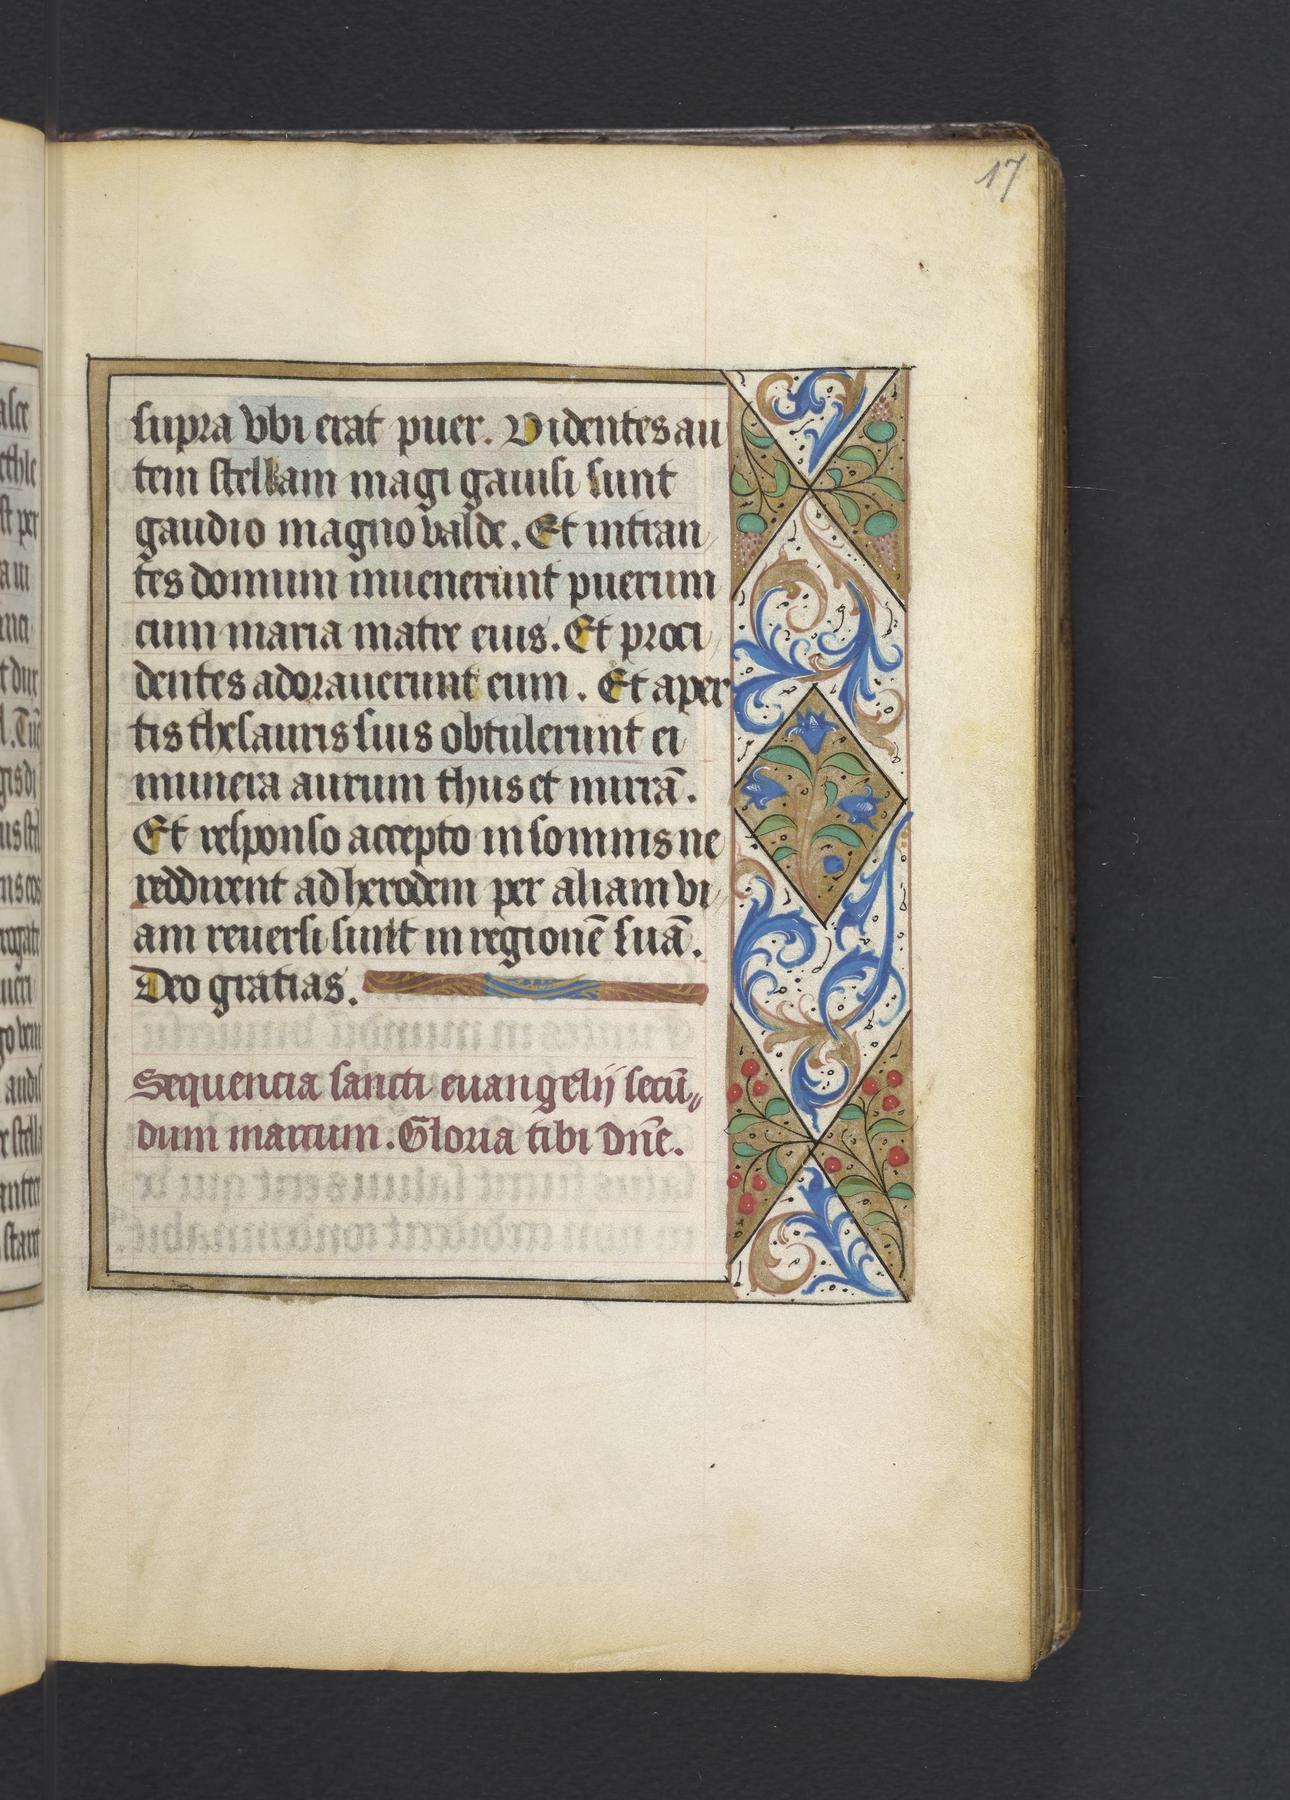 17
supra vbi erat puer. Videntes au
tem stellam magi gauisi sunt
gaudio magno valde. Et intran
tes domum inuenerunt puerum
cum maria matre eius. Et proci
dentes adorauerunt eum. Et aper
tis thesauris suis obtulerunt ei
munera aurum thus et mirrā.
Et responso accepto in somnis ne
reddirent ad herodem per aliam vi
am reuersi sunt in regionē suā.
Deo gratias.
Sequencia sancti euangelij secū
dum marcum. Gloria tibi dn̄e.